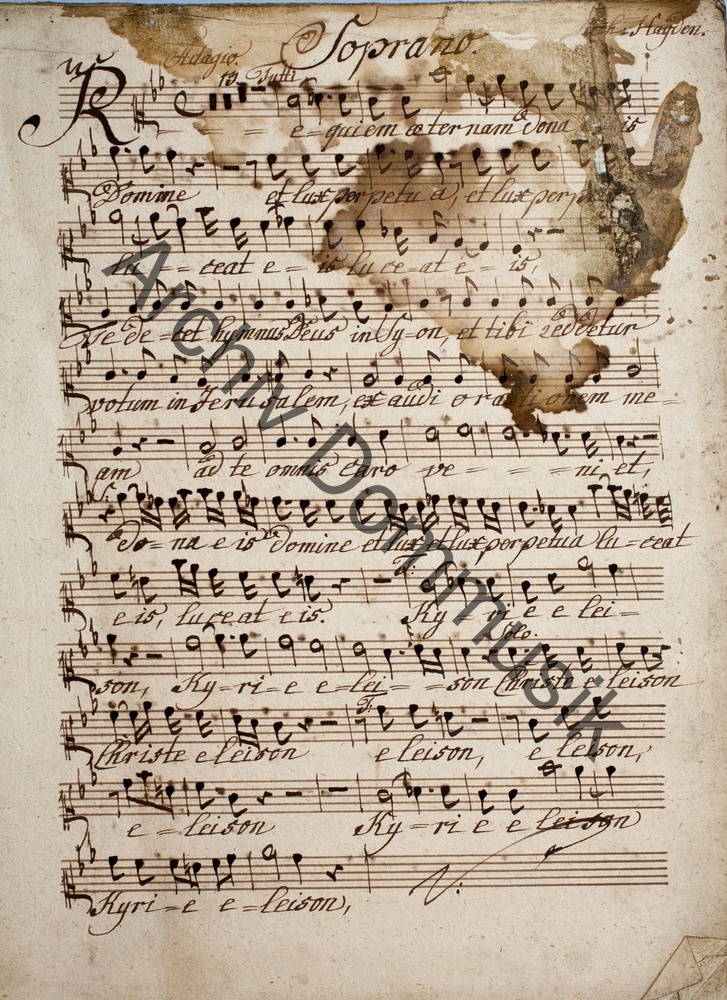 Soprano.
Adagio.
Haÿden.
13 Tutti
R e=quiem æternam Dona is
Domine et lux perpetua, et lux
lu==ceat e=is luceat e=is,
Te De=cet hymnus Deus in Sy=on, et tibi reddetur
votum in Jerusalem, exaudi orationem me=
am ad te omnis Caro ve===ni et,
Do=na eis Domine et lux et lux perpetua lu=ceat
eis, luceat eis. Ky=rie elei=
Solo.
son, Ky=ri=e e=lei==son Christe eleison
T:
Christe eleison eleison, eleison,
e=leison Ky=rie eleison
Kyri=e e=leison,
Archiv Dommusik